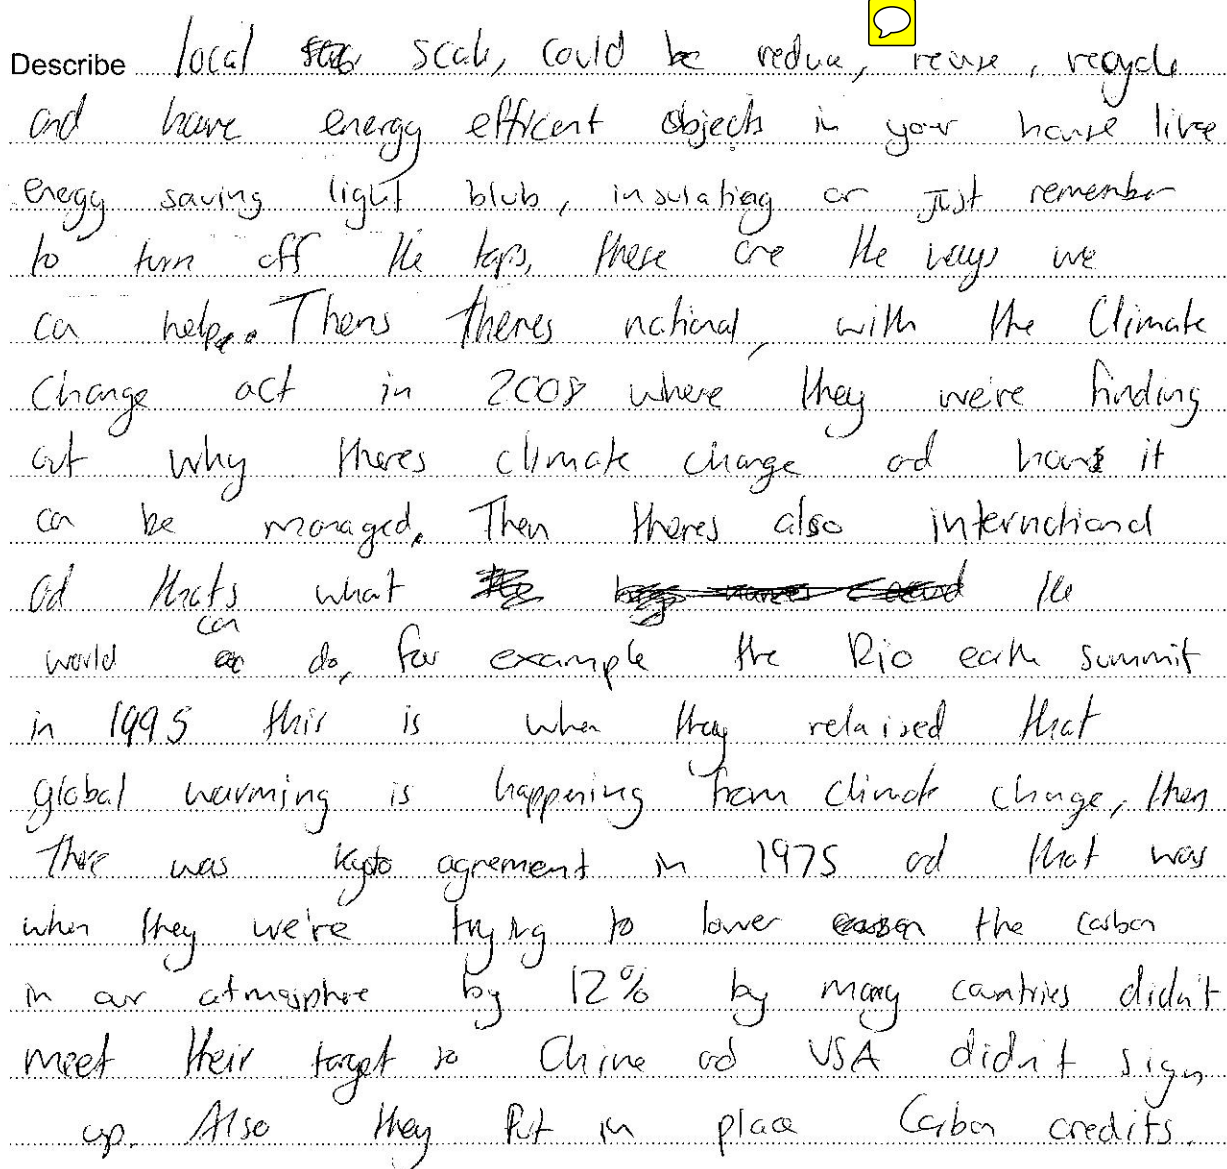 Describe local scale, could be reduce, reuse, recycle
and have energy efficent objects in your house like
enegy saving light blub, insulating or just remember
to turn off the taps, these are the ways we
can help. Thens theres national, with the Climate
Change act in 2008 where they we're finding
out why theres climate change and how it
can be managed. Then theres also international
and thats what the
world can do, for example the Rio earth summit
in 1995 this is when they relaised that
global warming is happening from climate change, then
There was Kyoto agrement in 1975 and that was
when they we're trying to lower the carbon
in our atmosphere by 12% by many countries didn't
meet their target so China and USA didn't sign
up. Also they Put in place Carbon credits.